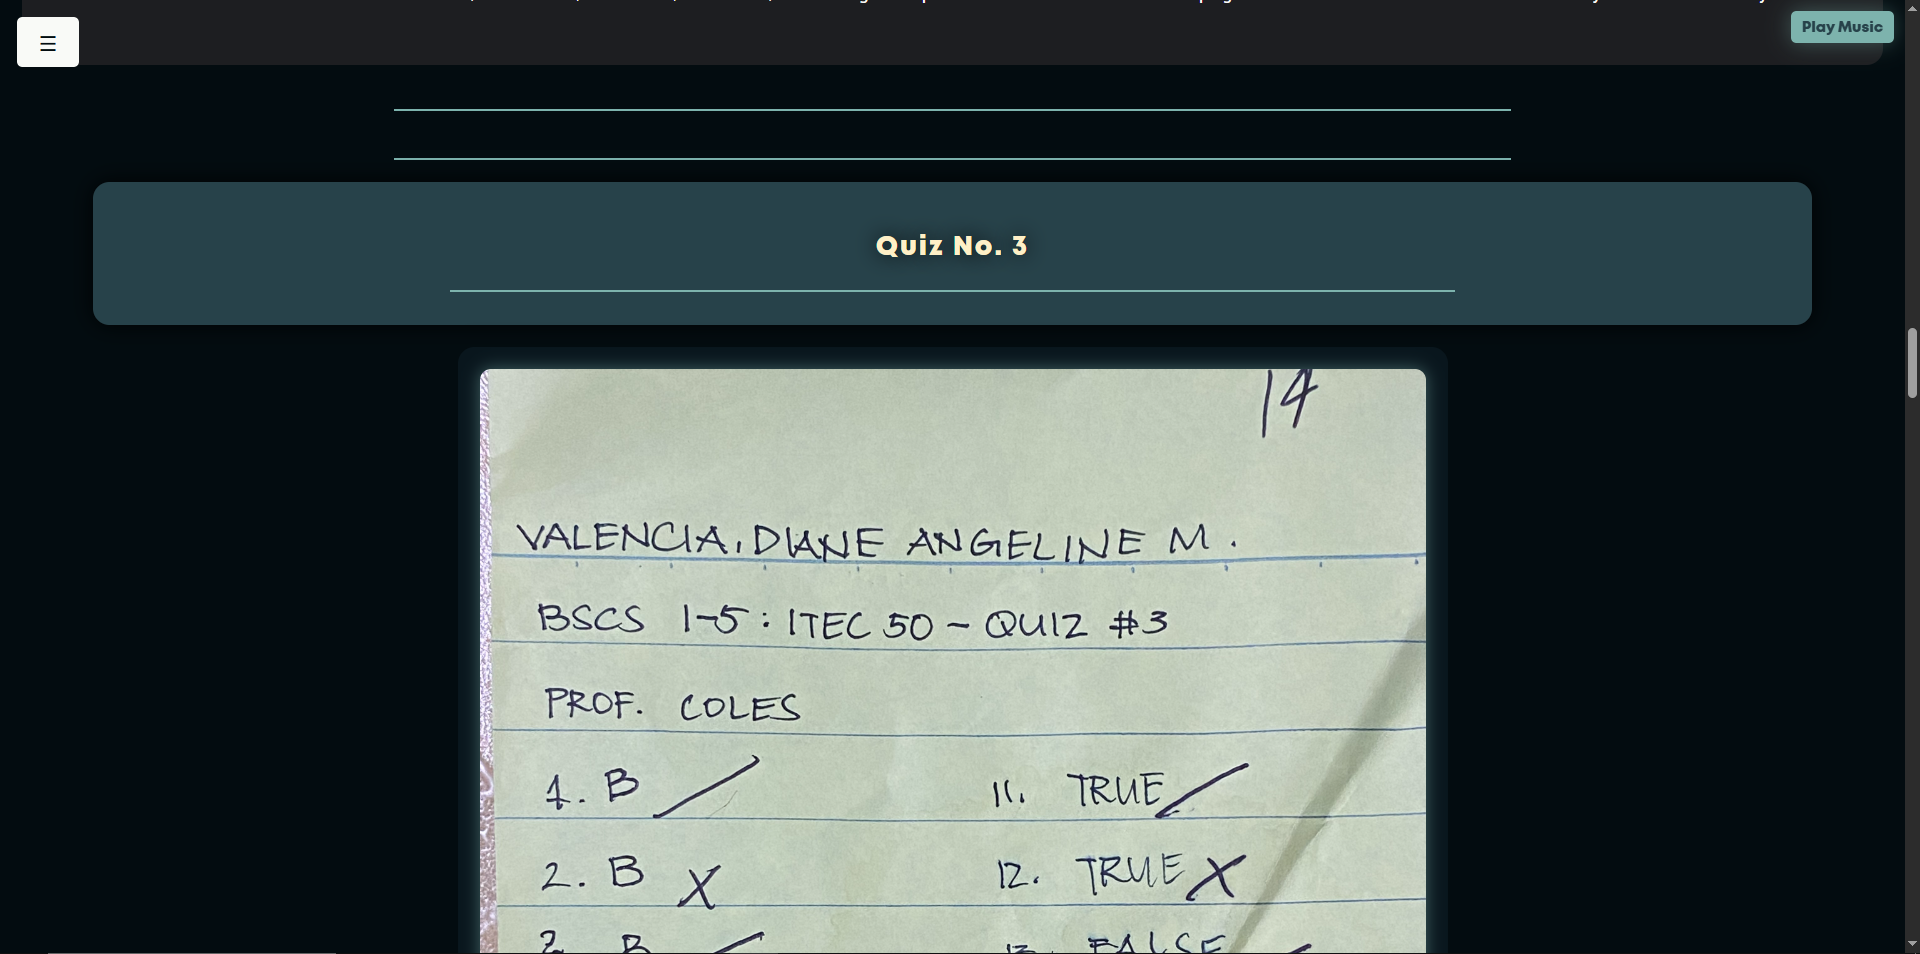 ☰
Play Music
Quiz No. 3
14
VALENCIA, DIANE ANGELINE M.
BSCS 1-5 : ITEC 50 - QUIZ #3
PROF. COLES
1. B
11. TRUE
2. B X
12. TRUE X
3. B
13. FALSE